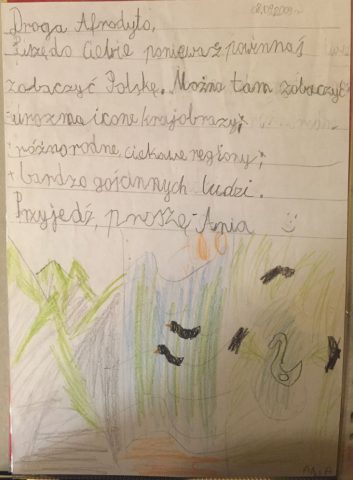 08.09.2009 r.
Droga Afrodyto,
Piszę do Ciebie ponieważ powinnaś
zobaczyć Polskę. Można tam zobaczyć:
urozmaicone krajobrazy;
różnorodne, ciekawe regiony;
bardzo gościnnych ludzi.
Przyjedź, proszę - Ania